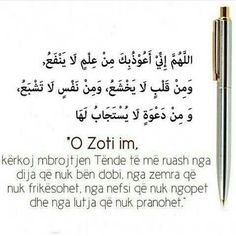 اللَّهُمَّ إِنِّيْ أَعُوْذُبِكَ مِنْ عِلْمٍ لَا يَنْفَعُ،
وَمِنْ قَلْبٍ لَا يَخْشَعُ، وَمِنْ نَفْسٍ لَا تَشْبَعُ،
وَ مِنْ دَعْوَةٍ لَا يُسْتَجَابُ لَهَا
"O Zoti im,
kërkoj mbrojtjen Tënde të më ruash nga
dija që nuk bën dobi, nga zemra që
nuk frikësohet, nga nefsi që nuk ngopet
dhe nga lutja që nuk pranohet."